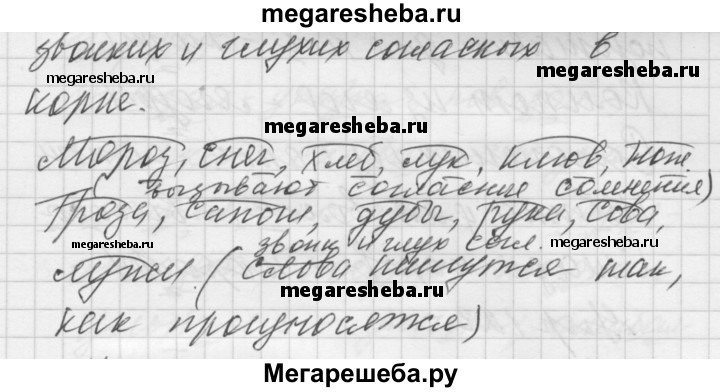 megaresheba.ru
звонких и глухих согласных в
megaresheba.ru
megaresheba.ru
корне.
megaresheba.ru
Мороз, снег, хлеб, лук, клюв,
(вызывают согласные сомнения)
Гроза, сапоги, дубы, рука, сова,
megaresheba.ru
звонк и глух согл.
megaresheba.ru
лужи. (слова пишутся так,
megaresheba.ru
как произносятся)
Мегарешеба.ру